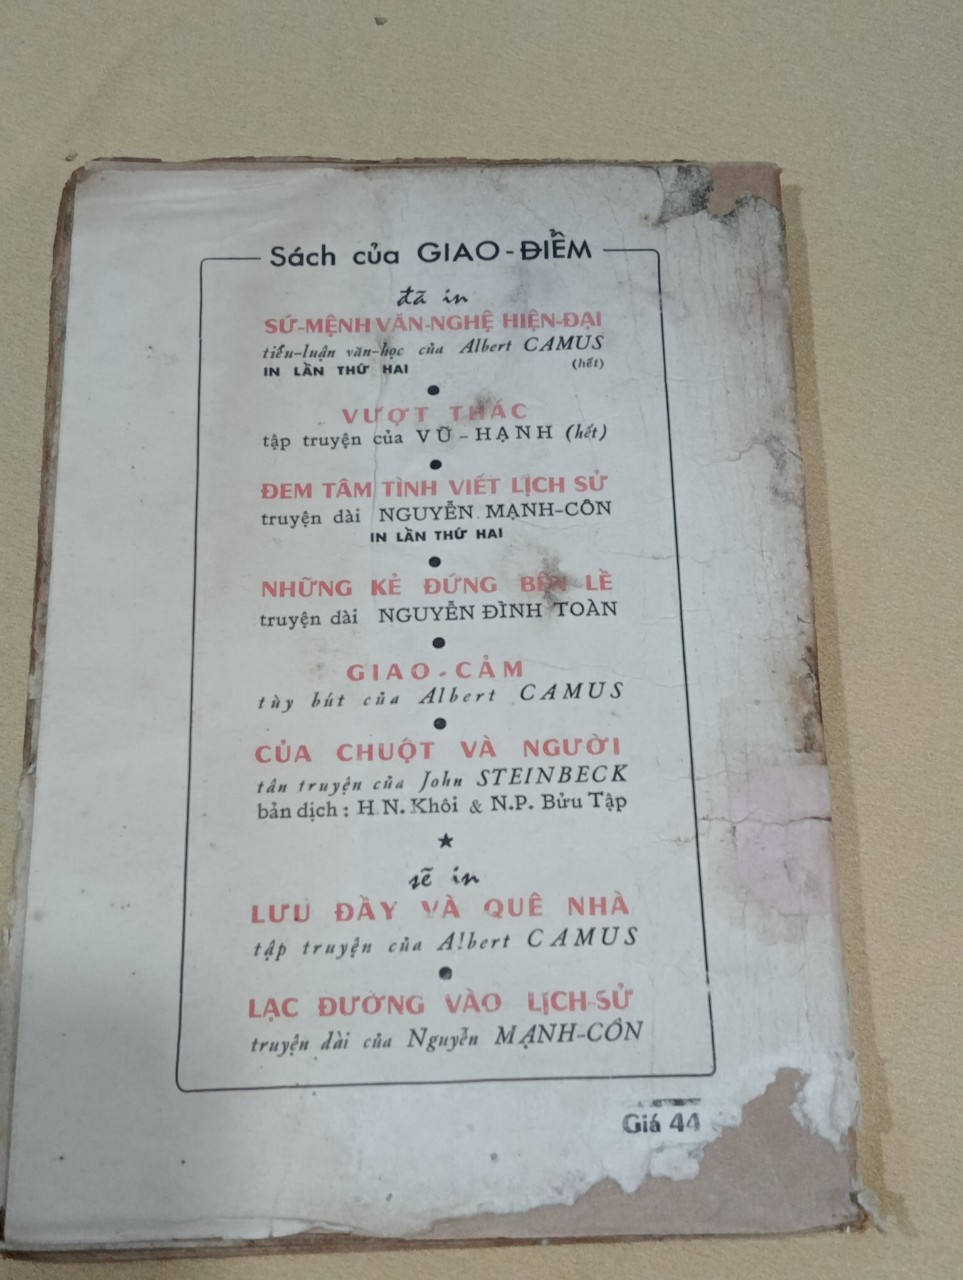 Sách của GIAO-ĐIỂM
đã in
SỨ-MỆNH VĂN-NGHỆ HIỆN-ĐẠI
tiểu-luận văn-học của Albert CAMUS
IN LẦN THỨ HAI (hết)
VƯỢT THÁC
tập truyện của VŨ-HẠNH (hết)
ĐEM TÂM TÌNH VIẾT LỊCH SỬ
truyện dài NGUYỄN MẠNH-CÔN
IN LẦN THỨ HAI
NHỮNG KẺ ĐỨNG BÊN LỀ
truyện dài NGUYỄN ĐÌNH TOÀN
GIAO-CẢM
tùy bút của Albert CAMUS
CỦA CHUỘT VÀ NGƯỜI
tân truyện của John STEINBECK
bản dịch : H.N. Khôi & N.P. Bửu Tập
sẽ in
LƯU ĐẦY VÀ QUÊ NHÀ
tập truyện của Albert CAMUS
LẠC ĐƯỜNG VÀO LỊCH-SỬ
truyện dài của Nguyễn MẠNH-CÔN
Giá 44